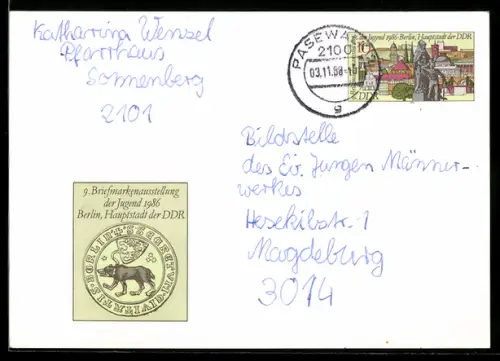 Katharina Wensel
Pfarrhaus
Sonnenberg
2101
PASEWALK
2100
03.11.88
g
der Jugend 1986 · Berlin, Hauptstadt der DDR
DDR
Bildstelle
des Ev. Jungen Männer-
werkes
Hesekielstr. 1
Magdeburg
3014
9. Briefmarkenausstellung
der Jugend 1986
Berlin, Hauptstadt der DDR